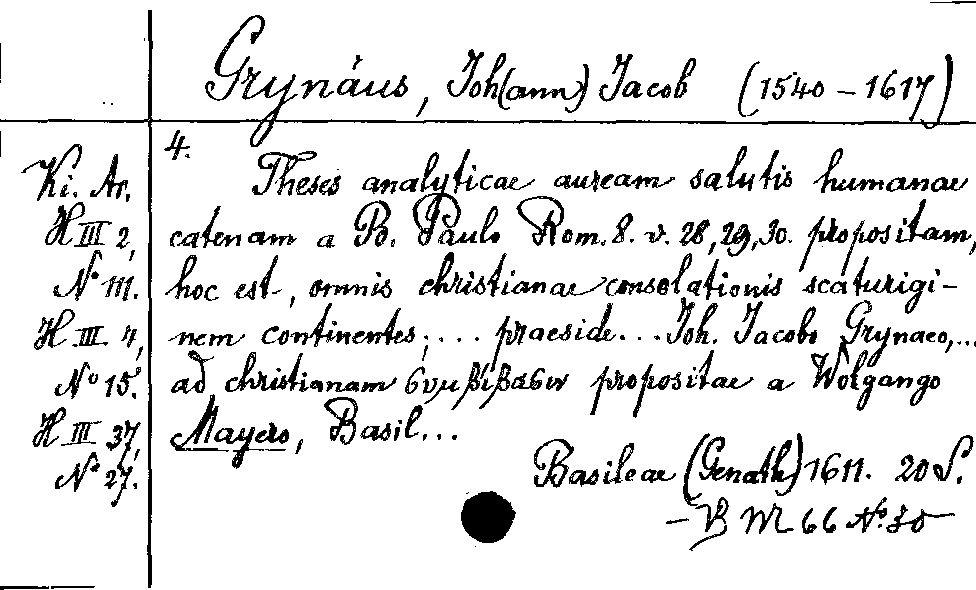 Grynäus, Joh(ann) Jacob (1540-1617)
4.
Ki. Ar. Theses analyticae auream salutis humanae
H III 2, catenam a B. Paulo Rom. 8. v. 28, 29, 30. propositam,
No 111. hoc est, omnis christianae consolationis scaturigi-
H III. 4, nem continentes; ... praeside ... Joh. Jacobo Grynaeo, ...
No 15. ad christianam συμβίβασιν propositae a Wolgango
H III 37, Mayero, Basil...
No 27. Basileae (Genath) 1611. 20 S.
- 66 No. 30